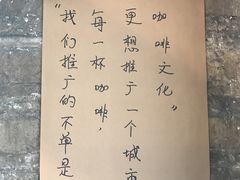 “我们推广的不单是
每一杯咖啡，
更想推广一个城市
咖啡文化”